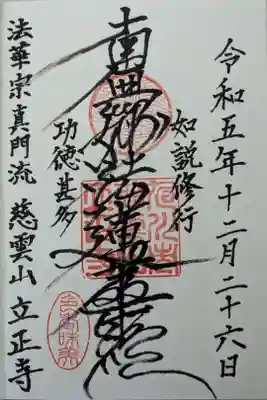 令和五年十二月二十六日
如説修行
南無妙法蓮華経
功徳甚多
法華宗真門流 慈雲山 立正寺